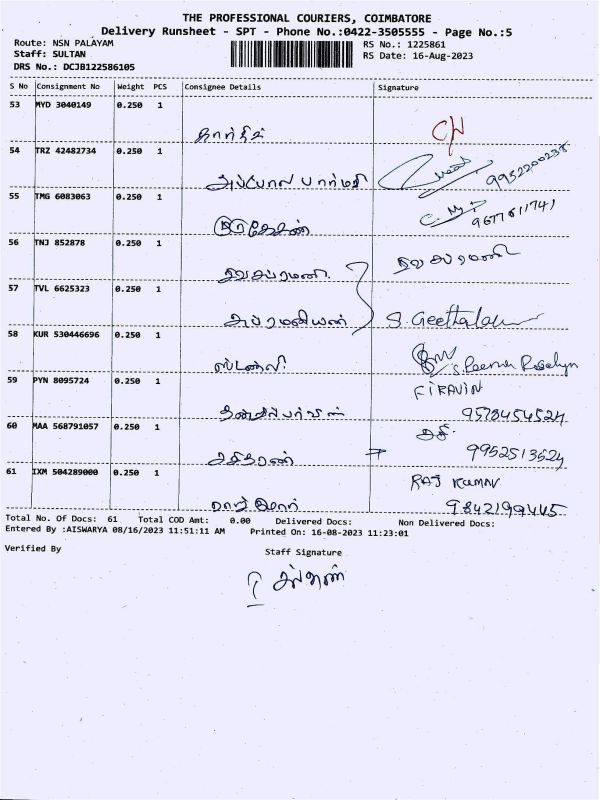 THE PROFESSIONAL COURIERS, COIMBATORE
Delivery Runsheet - SPT - Phone No.:0422-3505555 - Page No.:5
Route: NSN PALAYAM RS No.: 1225861
Staff: SULTAN RS Date: 16-Aug-2023
DRS No.: DCJB122586105
S No Consignment No Weight PCS Consignee Details Signature
53 MYD 3040149 0.250 1
கார்திக்
54 TRZ 42482734 0.250 1 9952200238
55 TMG 6083063 0.250 1 9677611741
56 TNJ 852878 0.250 1
57 TVL 6625323 0.250 1
S. Geethala
58 KUR 530446696 0.250 1
ஸ்டான்லி
59 PYN 8095724 0.250 1
9578454524
60 MAA 568791057 0.250 1
சசிதரன் 9952513624
61 IXM 504289000 0.250 1 RAJ KUMAR
ராஜ்குமார் 9842199445
Total No. Of Docs: 61 Total COD Amt: 0.00 Delivered Docs: Non Delivered Docs:
Entered By :AISWARYA 08/16/2023 11:51:11 AM Printed On: 16-08-2023 11:23:01
Verified By Staff Signature